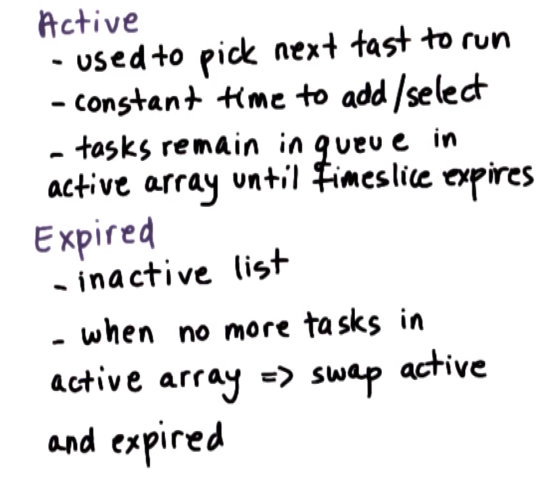 Active
- used to pick next tast to run
- constant time to add/select
- tasks remain in queue in
active array until timeslice expires
Expired
- inactive list
- when no more tasks in
active array => swap active
and expired